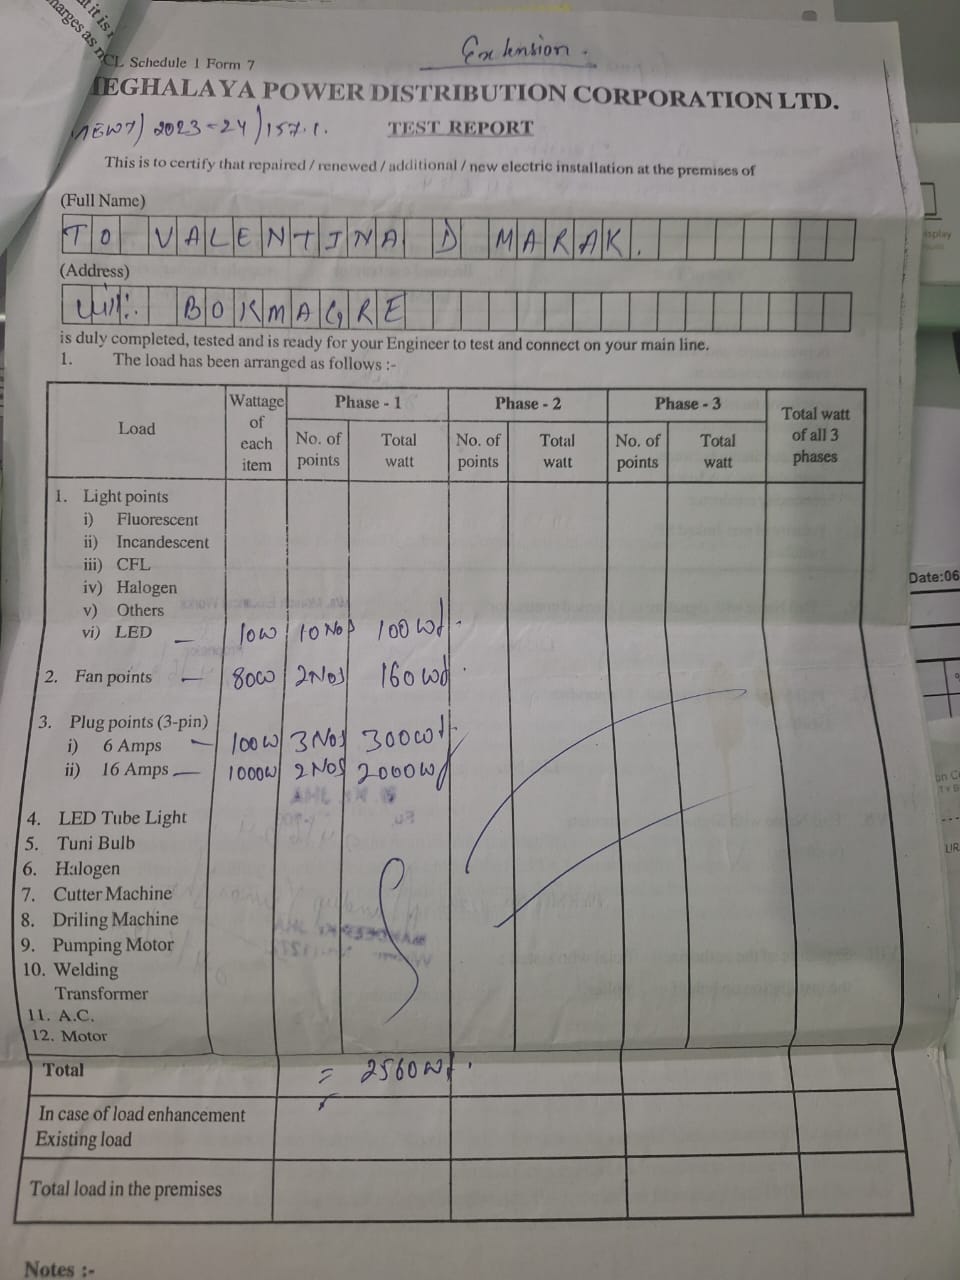 Extension.
CL Schedule 1 Form 7
MEGHALAYA POWER DISTRIBUTION CORPORATION LTD.
2023-24/157.1.
TEST REPORT
This is to certify that repaired / renewed / additional / new electric installation at the premises of
(Full Name)
TO VALENTINA D MARAK.
(Address)
Vill: BORMAGRE
is duly completed, tested and is ready for your Engineer to test and connect on your main line.
1. The load has been arranged as follows :-
Load
Wattage of each item
Phase - 1
Phase - 2
Phase - 3
Total watt of all 3 phases
No. of points
Total watt
No. of points
Total watt
No. of points
Total watt
1. Light points
i) Fluorescent
ii) Incandescent
iii) CFL
iv) Halogen
v) Others
vi) LED — 10W 10 Nos 100 Wt.
2. Fan points — 80W 2 Nos 160 Wt.
3. Plug points (3-pin)
i) 6 Amps — 100W 3 Nos 300 Wt
ii) 16 Amps — 1000W 2 Nos 2000 Wt
4. LED Tube Light
5. Tuni Bulb
6. Halogen
7. Cutter Machine
8. Driling Machine
9. Pumping Motor
10. Welding
Transformer
11. A.C.
12. Motor
Total = 2560 Wt.
In case of load enhancement
Existing load
Total load in the premises
Notes :-
Date:06